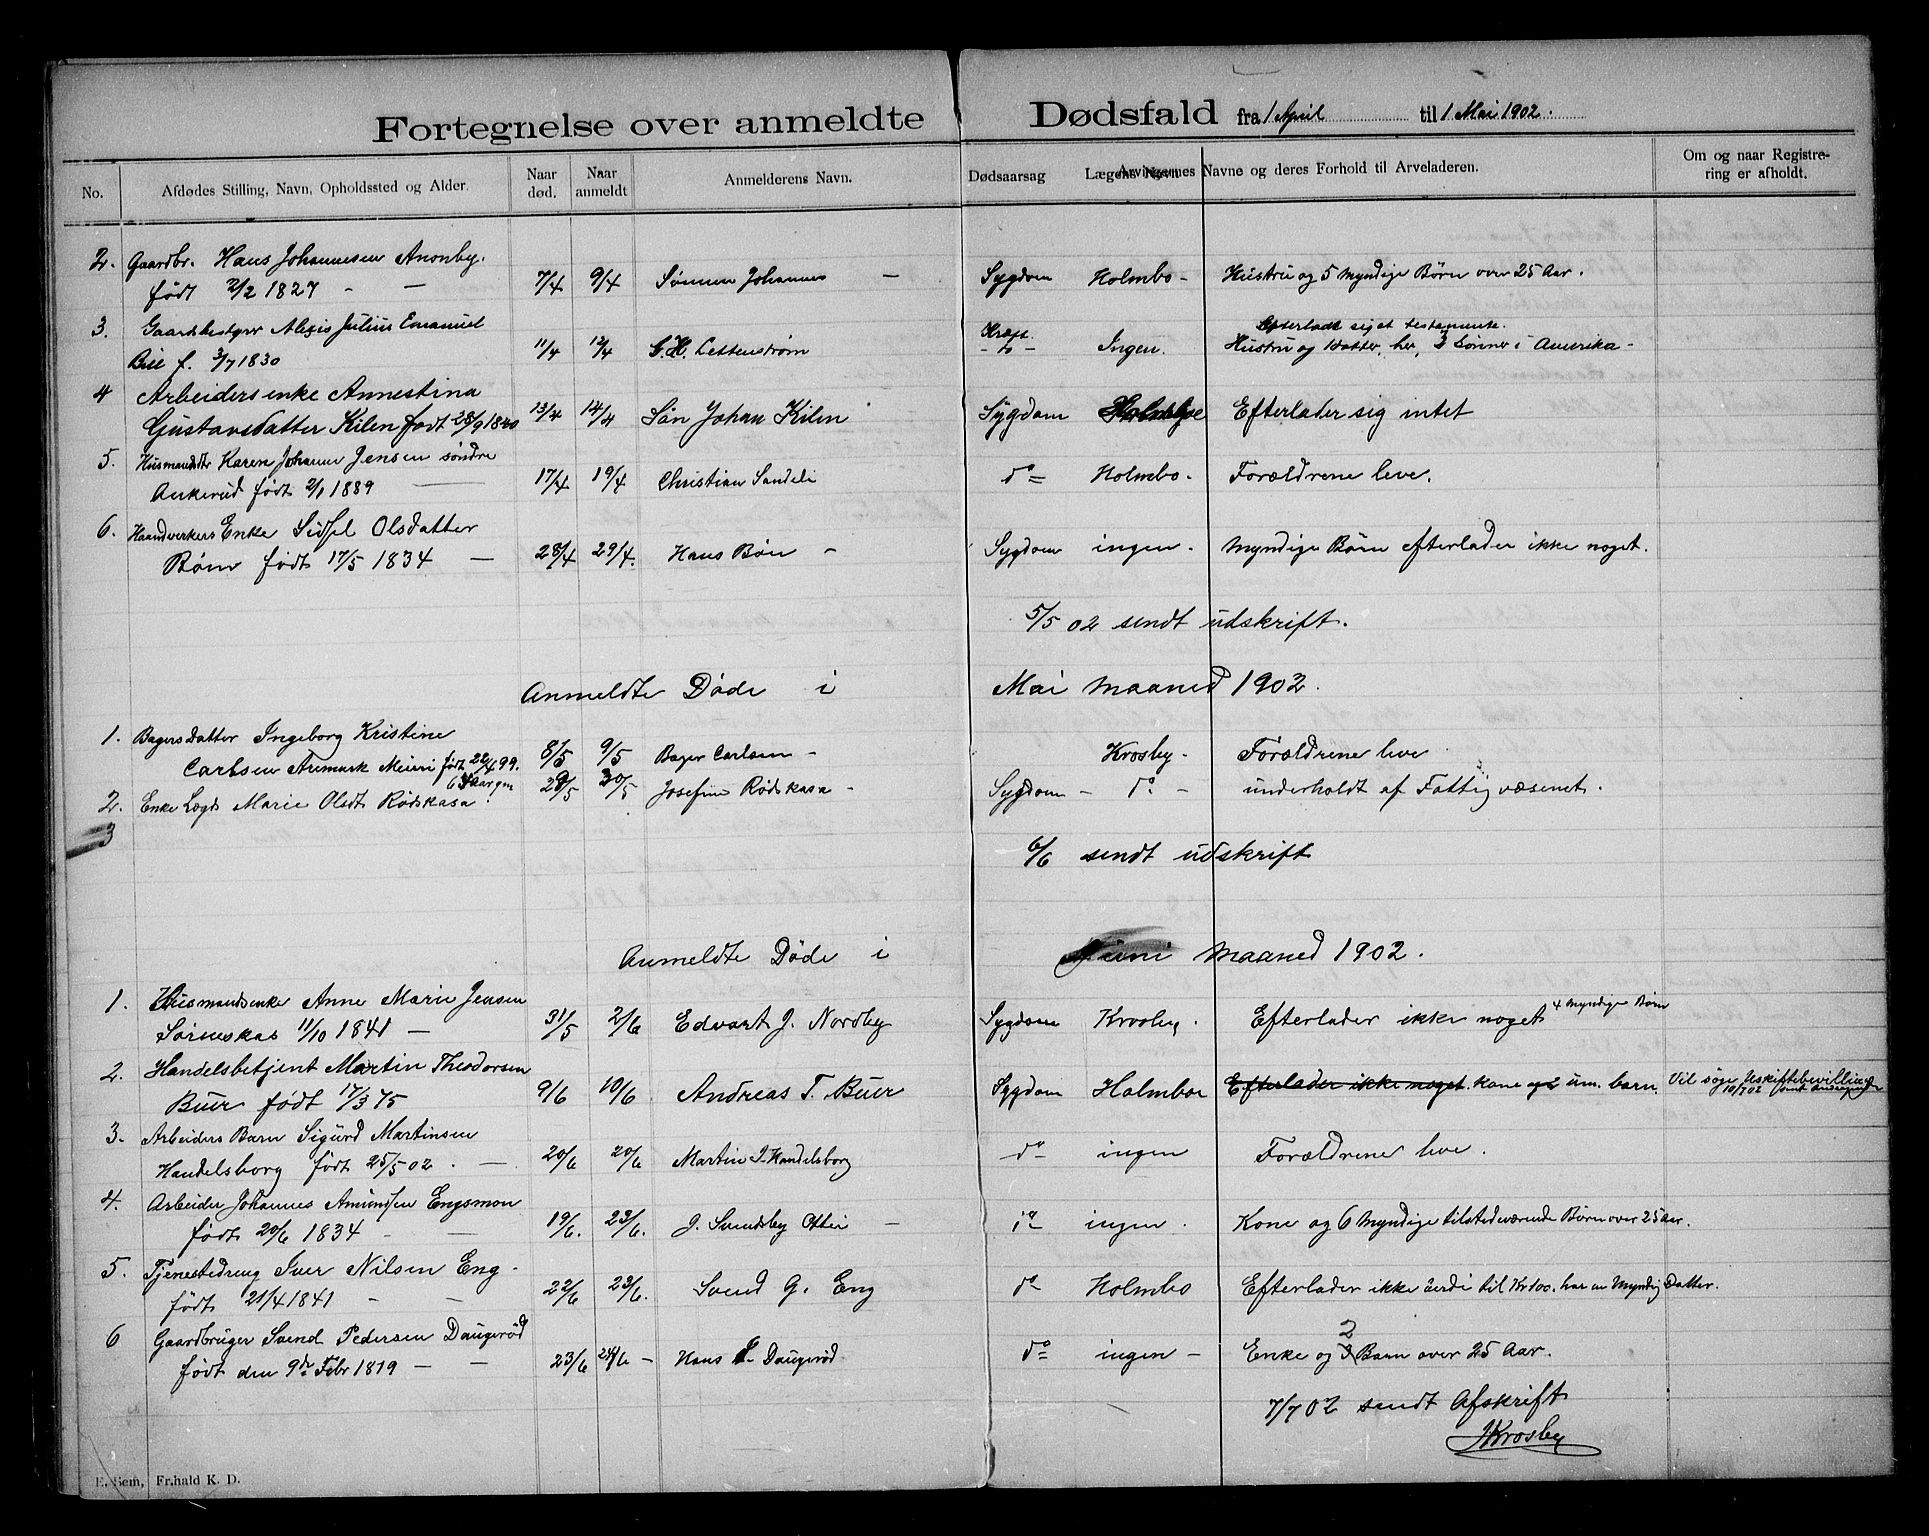 Fortegnelse over anmeldte Dødsfald fra 1 April til 1 Mai 1902.
No. Afdødes Stilling, Navn, Opholdssted og Alder. Naar død. Naar anmeldt Anmelderens Navn. Dødsaarsag Lægens Navn Arvingernes Navne og deres Forhold til Arveladeren. Om og naar Registrering er afholdt.
2. Gaardbr. Hans Johannesen Anonby.
født 2/2 1827 - - 7/4 9/4 Sønnen Johannes - Sygdom Holmbo - Hustru og 5 myndige Børn over 25 Aar.
3. Gaardsbestyrer Alexis Julius Emanuel Efterladt sig et testamente.
Bie f. 3/7 1830 11/4 12/4 G. H. Lettenstrøm Kræft Ingen. Hustru og 1 datter, her, 3 Sønner i Amerika -
4 Arbeiders enke Annestina
Gustavsdatter Kilen født 28/9 1840 13/4 14/4 Søn Johan Kilen Sygdom Holmboe Efterlader sig intet
5. Husmandsdtr Karen Johanne Jensen søndre
Ankerud født 2/1 1889 17/4 19/4 Christian Sandeli do Holmbo. Forældrene leve.
6. Haandverkers Enke Sidsel Olsdatter
Bøn født 17/5 1834 - 28/4 29/4. Hans Bøn - Sygdom ingen. Myndige Børn efterlader ikke noget.
5/5 02 sendt udskrift.
Anmeldte Døde i Mai maaned 1902.
1. Bagers Datter Ingeborg Kristine
Carlsen Aremark Meieri født 22/4 99. 8/5 9/5 Bager Carlsen - Krosby. Forældrene leve
2. Enke Logd Marie Olsdt Rødskasa. 29/5 30/5 Josefine Rødskasa - Sygdom - do - underholdt af Fattigvæsenet.
3
6/6 sendt udskrift
Anmeldte Døde i Juni maaned 1902.
1. Husmandsenke Anne Marie Jensen
Sørneskas 11/10 1841 - 31/5 2/6 Edvart J. Nordby Sygdom Krosby. Efterlader ikke noget 4 Myndige Børn
2. Handelsbetjent Martin Theodorsen
Buer født 17/3 75 9/6 10/6 Andreas T. Buer Sygdom Holmboe Efterlader ikke noget kone og 2 um. barn. Vil søge Uskiftebevilling 10/7 02
3. Arbeiders Barn Sigurd Martinsen
Handelsborg født 25/5 02. - 20/6 20/6 Martin J. Handelsborg do ingen Forældrene leve.
4. Arbeider Johannes Amundsen Engsmon
født 20/6 1834 - - 19/6. 23/6. J. Svendsby Otter - do ingen. Kone og 6 Myndige tilstedeværende Børn over 25 Aar.
5. Tjenestedreng Iver Nilsen Eng -
født 21/4 1841 - - 22/6 23/6. Svend G. Eng do Holmbo Efterlader ikke verdi til Kr 100. har en Myndig Datter.
6 Gaardbruger Svend Pedersen Daugerød
født den 9de Febr 1819 - - 23/6 24/6 - Hans S. Daugerød do ingen - Enke og 2 Barn over 25 Aar.
7/7 02 sendt Afskrift
J Krosby
E. Sem, Fr.hald K. D.